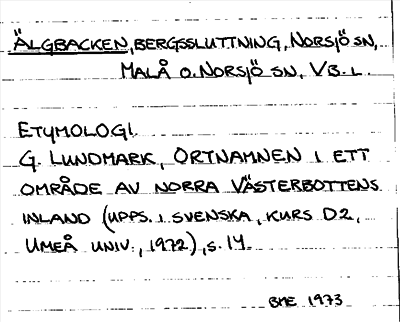 ÄLGBACKEN, BERGSSLUTTNING, NORSJÖ SN,
MALÅ O. NORSJÖ SN, VB. L.
ETYMOLOGI.
G. LUNDMARK, ORTNAMNEN I ETT
OMRÅDE AV NORRA VÄSTERBOTTENS
INLAND (UPPS. I SVENSKA, KURS D2,
UMEÅ UNIV., 1972), S. 14
BME 1973